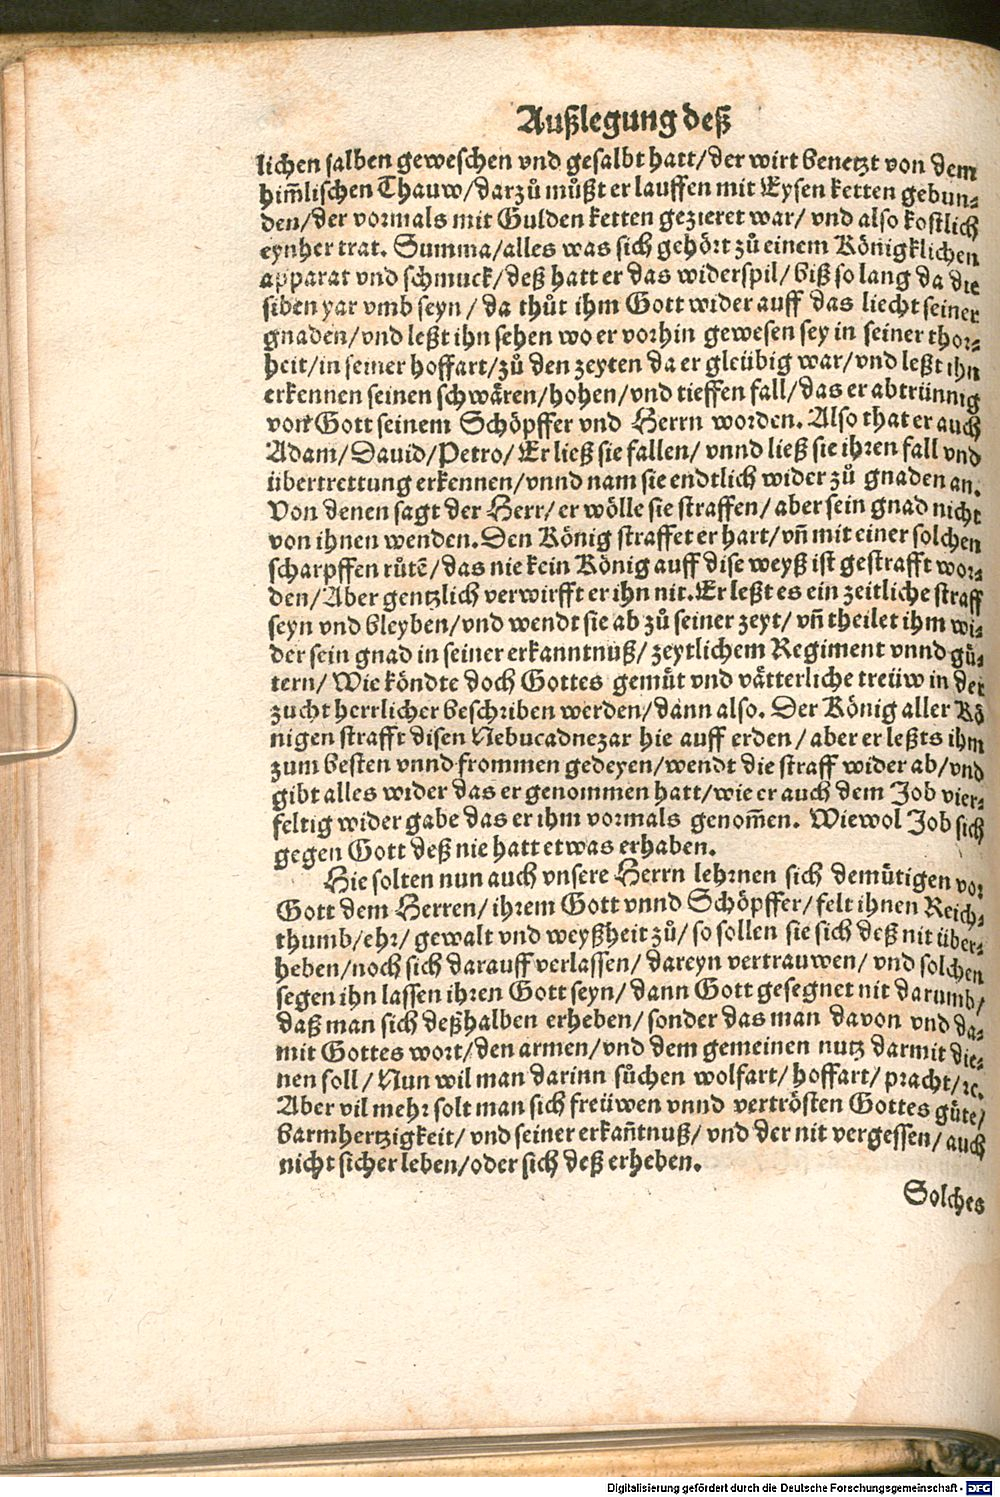 Außlegung deß
lichen salben geweschen vnd gesalbt hatt/der wirt benetzt von dem
him̃lischen Thauw/darzů můßt er lauffen mit Eysen ketten gebun⸗
den/der vormals mit Gulden ketten gezieret war/ vnd also kostlich
eynher trat. Summa/alles was sich gehört zů einem Königklichen
apparat vnd schmuck/deß hatt er das widerspil/ biß so lang da die
siben yar vmb seyn / da thůt ihm Gott wider auff das liecht seiner
gnaden/vnd leßt ihn sehen wo er vorhin gewesen sey in seiner thor⸗
heit/in seiner hoffart/zů den zeyten da er gleübig war/vnd leßt ihn
erkennen seinen schwären/hohen/vnd tieffen fall/das er abtrünnig
von Gott seinem Schöpffer vnd Herrn worden. Also that er auch
Adam/Dauid/Petro/Er ließ sie fallen/ vnnd ließ sie ihren fall vnd
übertrettung erkennen/vnnd nam sie endtlich wider zů gnaden an.
Von denen sagt der Herr/ er wölle sie straffen/ aber sein gnad nicht
von ihnen wenden. Den König straffet er hart/vñ mit einer solchen
scharpffen růtẽ/das nie kein König auff dise weyß ist gestrafft wor⸗
den/Aber gentzlich verwirfft er ihn nit. Er leßt es ein zeitliche straff
seyn vnd bleyben/vnd wendt sie ab zů seiner zeyt/vñ theilet ihm wi⸗
der sein gnad in seiner erkanntnuß/ zeytlichem Regiment vnnd gü⸗
tern/ Wie köndte doch Gottes gemüt vnd vätterliche treüw in der
zucht herrlicher beschriben werden/dann also. Der König aller Kö
nigen strafft disen Nebucadnezar hie auff erden / aber er leßts ihm
zum besten vnnd frommen gedeyen/wendt die straff wider ab/vnd
gibt alles wider das er genommen hatt/wie er auch dem Job vier⸗
feltig wider gabe das er ihm vormals genom̃en. Wiewol Job sich
gegen Gott deß nie hatt etwas erhaben.
Hie solten nun auch vnsere Herrn lehrnen sich demütigen vor
Gott dem Herren/ ihrem Gott vnnd Schöpffer/ felt ihnen Reich⸗
thumb/ehr/ gewalt vnd weyßheit zů/ so sollen sie sich deß nit über⸗
heben/noch sich darauff verlassen/ dareyn vertrauwen/ vnd solchen
segen ihn lassen ihren Gott seyn/ dann Gott gesegnet nit darumb/
daß man sich deßhalben erheben/ sonder das man davon vnd da⸗
mit Gottes wort/den armen/vnd dem gemeinen nutz darmit die⸗
nen soll/ Nun wil man darinn sůchen wolfart/ hoffart/ pracht/ꝛc.
Aber vil mehr solt man sich freüwen vnnd vertrösten Gottes güte/
barmhertzigkeit/ vnd seiner erkañtnuß/ vnd der nit vergessen/ auch
nicht sicher leben/oder sich deß erheben.
Solches
Digitalisierung gefördert durch die Deutsche Forschungsgemeinschaft - DFG